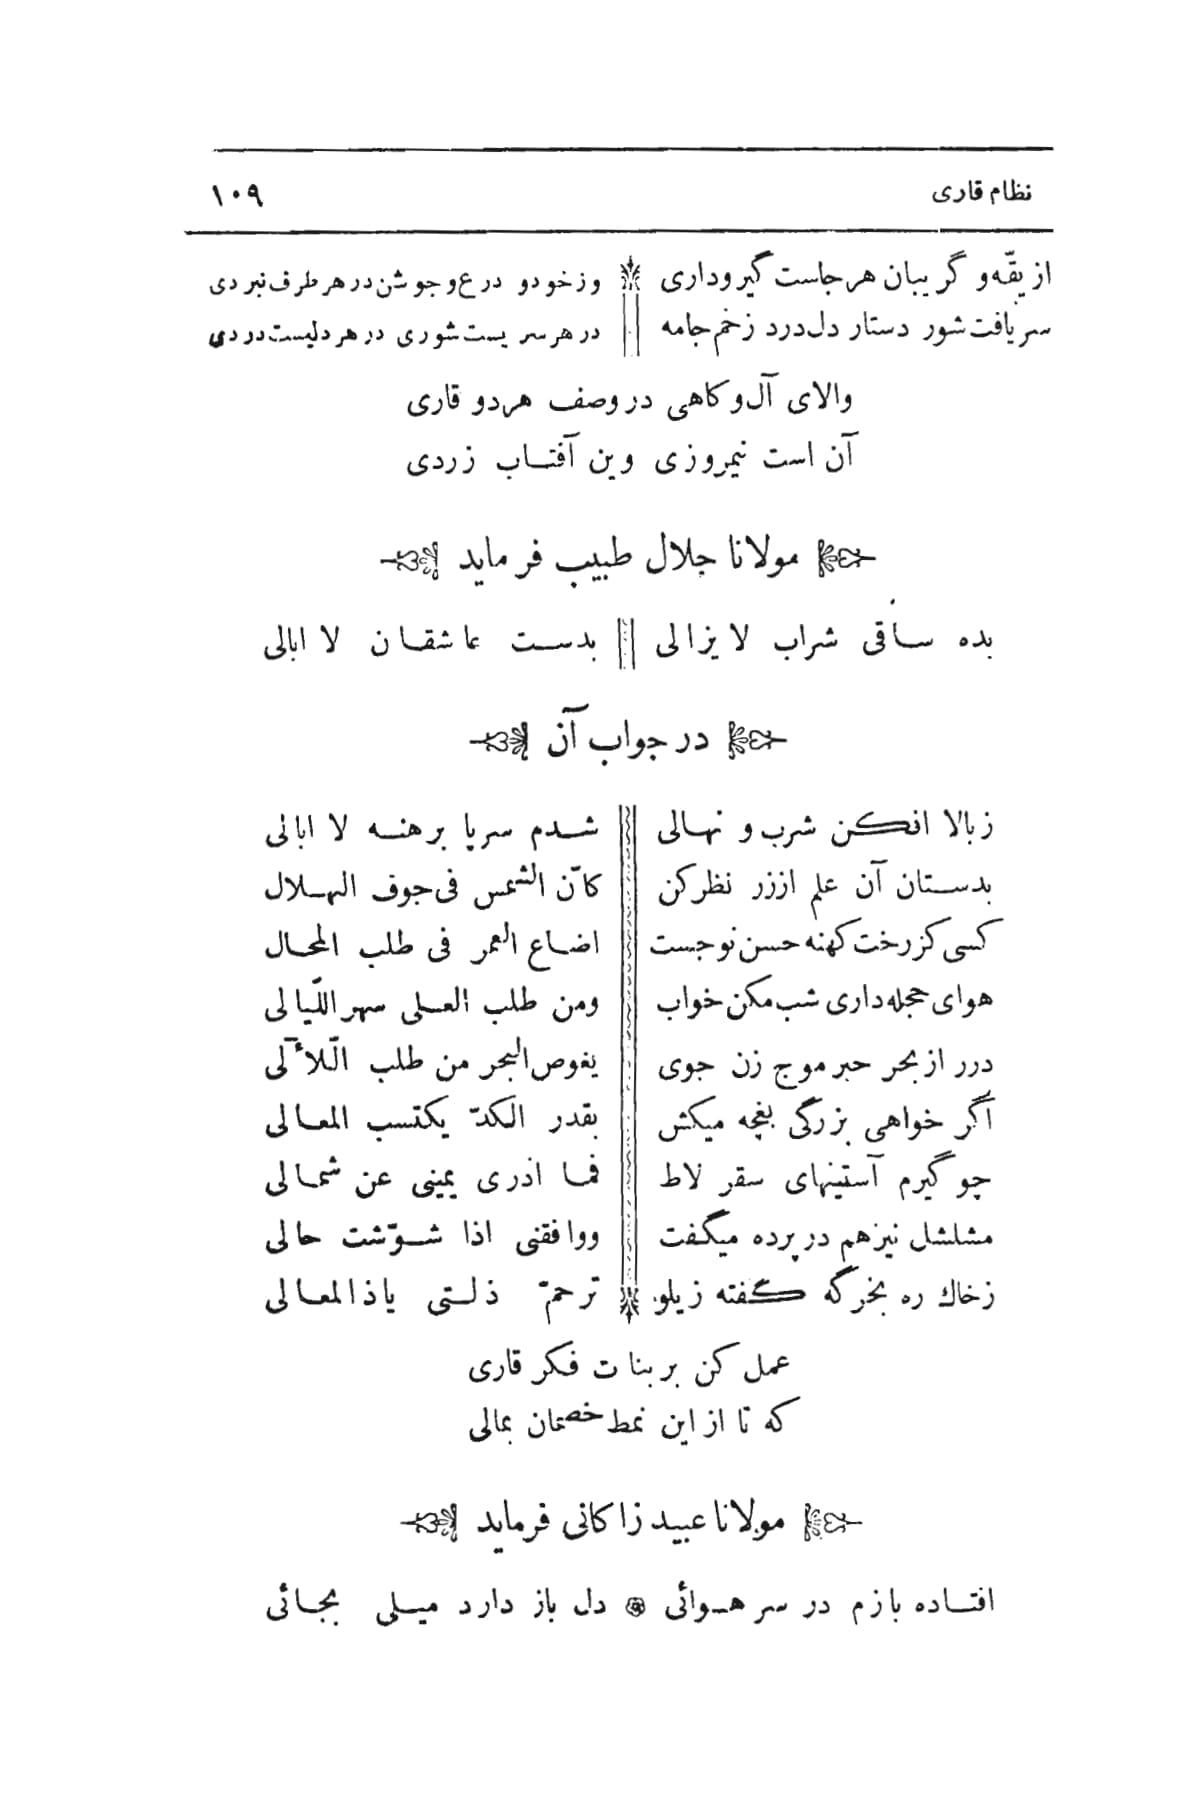 نظام قاری ۱۰۹
از یقّه و گریبان هر جاست گیروداری وز خود و درع و جوشن در هر طرف نبردی
سر یافت شور دستار دل درد زخم جامه در هر سریست شوری در هر دلیست دردی
والای آل و کاهی در وصف هر دو قاری
آن است نیمروزی وین آفتاب زردی
مولانا جلال طبیب فرماید
بده ساقی شراب لایزالی بدست عاشقان لا ابالی
در جواب آن
زبالا افکن شرب و نهالی شدم سرپا برهنه لا ابالی
بدستان آن علم از زر نظر کن کانّ الشمس فی جوف الهلال
کسی کز رخت کهنه حسن نو جست اضاع العمر فی طلب المحال
هوای حجله داری شب مکن خواب ومن طلب العلی سهر اللّیالی
درر از بحر حبر موج زن جوی یغوص البحر من طلب الّلآلی
اگر خواهی بزرگی بغچه میکش بقدر الکدّ یکتسب المعالی
چو گیرم آستینهای سقرلاط فما ادری یمینی عن شمالی
مشلشل نیز هم در پرده میگفت ووافقنی اذا شوّشت حالی
زخاك ره بخرگه گفته زیلو ترحمّ ذلتی یا ذالمعالی
عمل کن بر بنات فکر قاری
که تا از این نمط خصمان بمالی
مولانا عبید زاکانی فرماید
افتاده بازم در سر هوائی دل باز دارد میلی بجائی